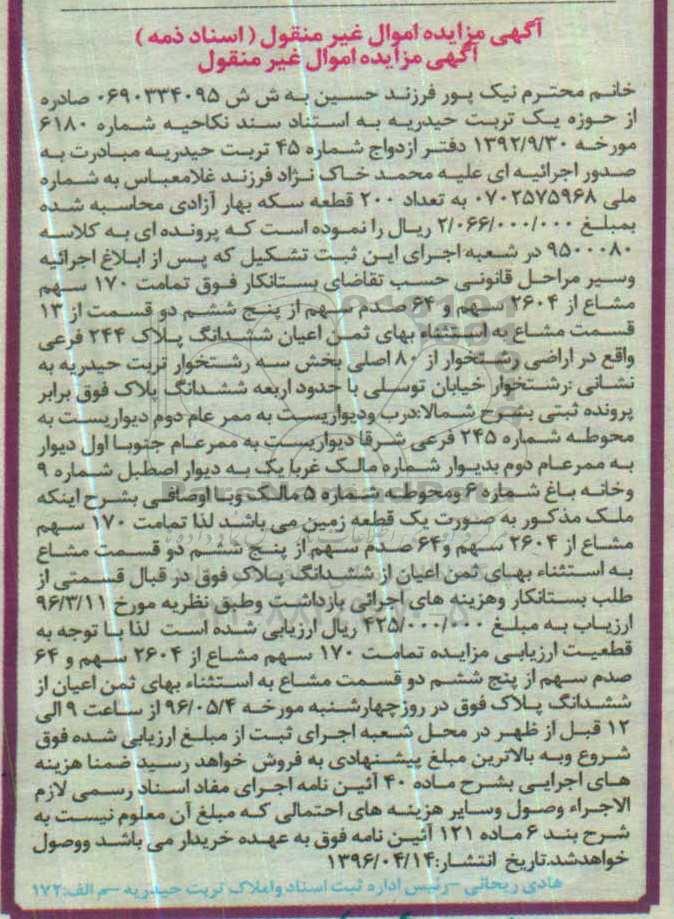 آگهی مزایده اموال غیر منقول ( اسناد ذمه )
آگهی مزایده اموال غیر منقول
خانم محترم نیک پور فرزند حسین به ش ش ۰۶۹۰۳۳۴۰۹۵ صادره
از حوزه یک تربت حیدریه به استناد سند نکاحیه شماره ۶۱۸۰
مورخه ۱۳۹۲/۹/۳۰ دفتر ازدواج شماره ۴۵ تربت حیدریه مبادرت به
صدور اجرائیه ای علیه محمد خاک نژاد فرزند غلامعباس به شماره
ملی ۰۷۰۲۵۷۵۹۶۸ به تعداد ۲۰۰ قطعه سکه بهار آزادی محاسبه شده
بمبلغ ۲/۰۶۶/۰۰۰/۰۰۰ ریال را نموده است که پرونده ای به کلاسه
۹۵۰۰۰۸۰ در شعبه اجرای این ثبت تشکیل که پس از ابلاغ اجرائیه
وسیر مراحل قانونی حسب تقاضای بستانکار فوق تمامت ۱۷۰ سهم
مشاع از ۲۶۰۴ سهم و ۶۴ صدم سهم از پنج ششم دو قسمت از ۱۳
قسمت مشاع به استثناء بهای ثمن اعیان ششدانگ پلاک ۲۴۴ فرعی
واقع در اراضی رشتخوار از ۸۰ اصلی بخش سه رشتخوار تربت حیدریه به
نشانی :رشتخوار خیابان توسلی با حدود اربعه ششدانگ پلاک فوق برابر
پرونده ثبتی بشرح شمالا:درب ودیواریست به ممر عام دوم دیواریست به
محوطه شماره ۲۴۵ فرعی شرقا دیواریست به ممرعام جنوبا اول دیوار
به ممرعام دوم بدیوار شماره مالک غربا یک به دیوار اصطبل شماره ۹
وخانه باغ شماره ۶ ومحوطه شماره ۵ مالک وبا اوصافی بشرح اینکه
ملک مذکور به صورت یک قطعه زمین می باشد لذا تمامت ۱۷۰ سهم
مشاع از ۲۶۰۴ سهم و۶۴ صدم سهم از پنج ششم دو قسمت مشاع
به استثناء بهای ثمن اعیان از ششدانگ پلاک فوق در قبال قسمتی از
طلب بستانکار وهزینه های اجرائی بازداشت وطبق نظریه مورخ ۹۶/۳/۱۱
ارزیاب به مبلغ ۴۲۵/۰۰۰/۰۰۰ ریال ارزیابی شده است لذا با توجه به
قطعیت ارزیابی مزایده تمامت ۱۷۰ سهم مشاع از ۲۶۰۴ سهم و ۶۴
صدم سهم از پنج ششم دو قسمت مشاع به استثناء بهای ثمن اعیان از
ششدانگ پلاک فوق در روزچهارشنبه مورخه ۹۶/۰۵/۴ از ساعت ۹ الی
۱۲ قبل از ظهر در محل شعبه اجرای ثبت از مبلغ ارزیابی شده فوق
شروع وبه بالاترین مبلغ پیشنهادی به فروش خواهد رسید ضمنا هزینه
های اجرایی بشرح ماده ۴۰ آئین نامه اجرای مفاد اسناد رسمی لازم
الاجراء وصول وسایر هزینه های احتمالی که مبلغ آن معلوم نیست به
شرح بند ۶ ماده ۱۲۱ آئین نامه فوق به عهده خریدار می باشد ووصول
خواهدشد.تاریخ انتشار:۱۳۹۶/۰۴/۱۴
هادی ریحانی -رئیس اداره ثبت اسناد واملاک تربت حیدریه -م الف:۱۷۲